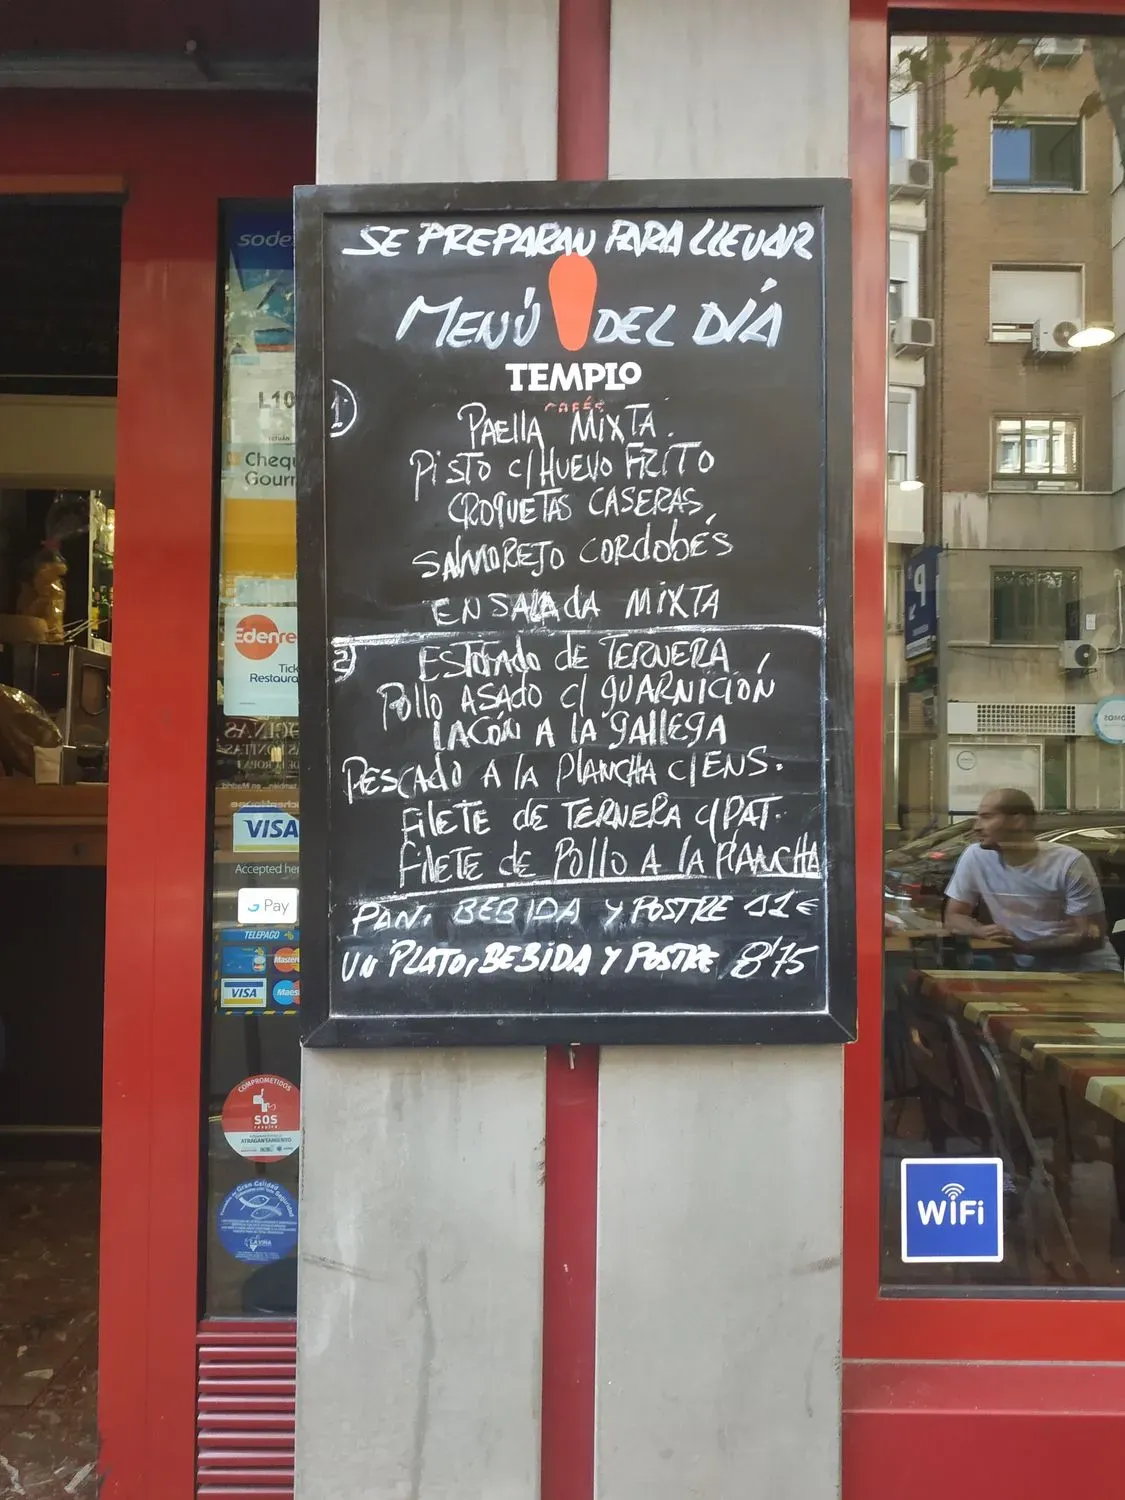 SE PREPARAN PARA LLEVAR
MENÚ DEL DÍA
TEMPLO
CAFÉS
1º
PAEllA MIXTA.
PISTO C/HUEVO FRITO
CROQUETAS CASERAS
SAlMOREJO CORdObÉS
ENSALAdA MIXTA
2)
ESTOfAdO dE TERNERA
POllO ASADO C/ gUARNICIÓN
LACÓN A LA gAllEgA
PESCAdO A lA PlANCHA C/ENS.
FilETE dE TERNERA C/PAT.
FilETE dE POllO A lA PlANCHA
PAN, BEBIDA Y POSTRE 11€
UN PLATO, BEBIDA Y POSTRE 8'75
sode
L10
TETUÁN
Cheq
Gourn
Edenre
Tick
Restaura
VISA
Accepted her
G Pay
TELEPAGO
Master
VISA
Maes
COMPROMETIDOS
SOS
respira
ATRAGANTAMIENTO
Gran Calidad
LA VIÑA
P
WiFi